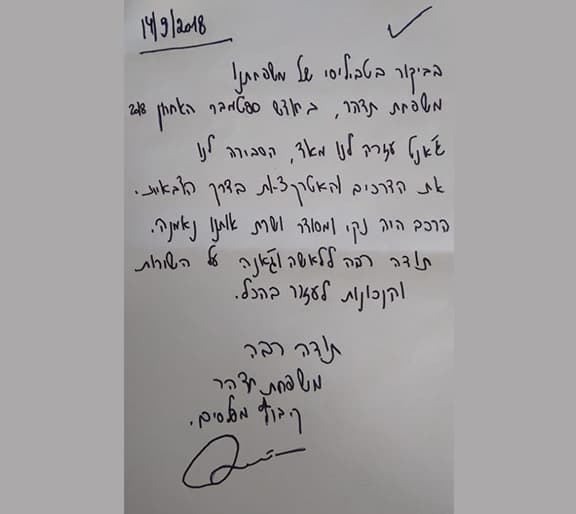 14/9/2018
בביקור בטביליסי של משפחתנו
משפחת תדהר, בחודש ספטמבר האחרון 2018
ג'אנט עזרה לנו מאד, הסבירה לנו
את הדרכים והאטרקציות בדרך
הרכב היה נקי ומסודר ושרת אותנו נאמנה.
תודה רבה ללאשה וג'אנה על השירות
והנכונות לעזור בהכל.
תודה רבה
משפחת תדהר
קיבוץ מפלסים.